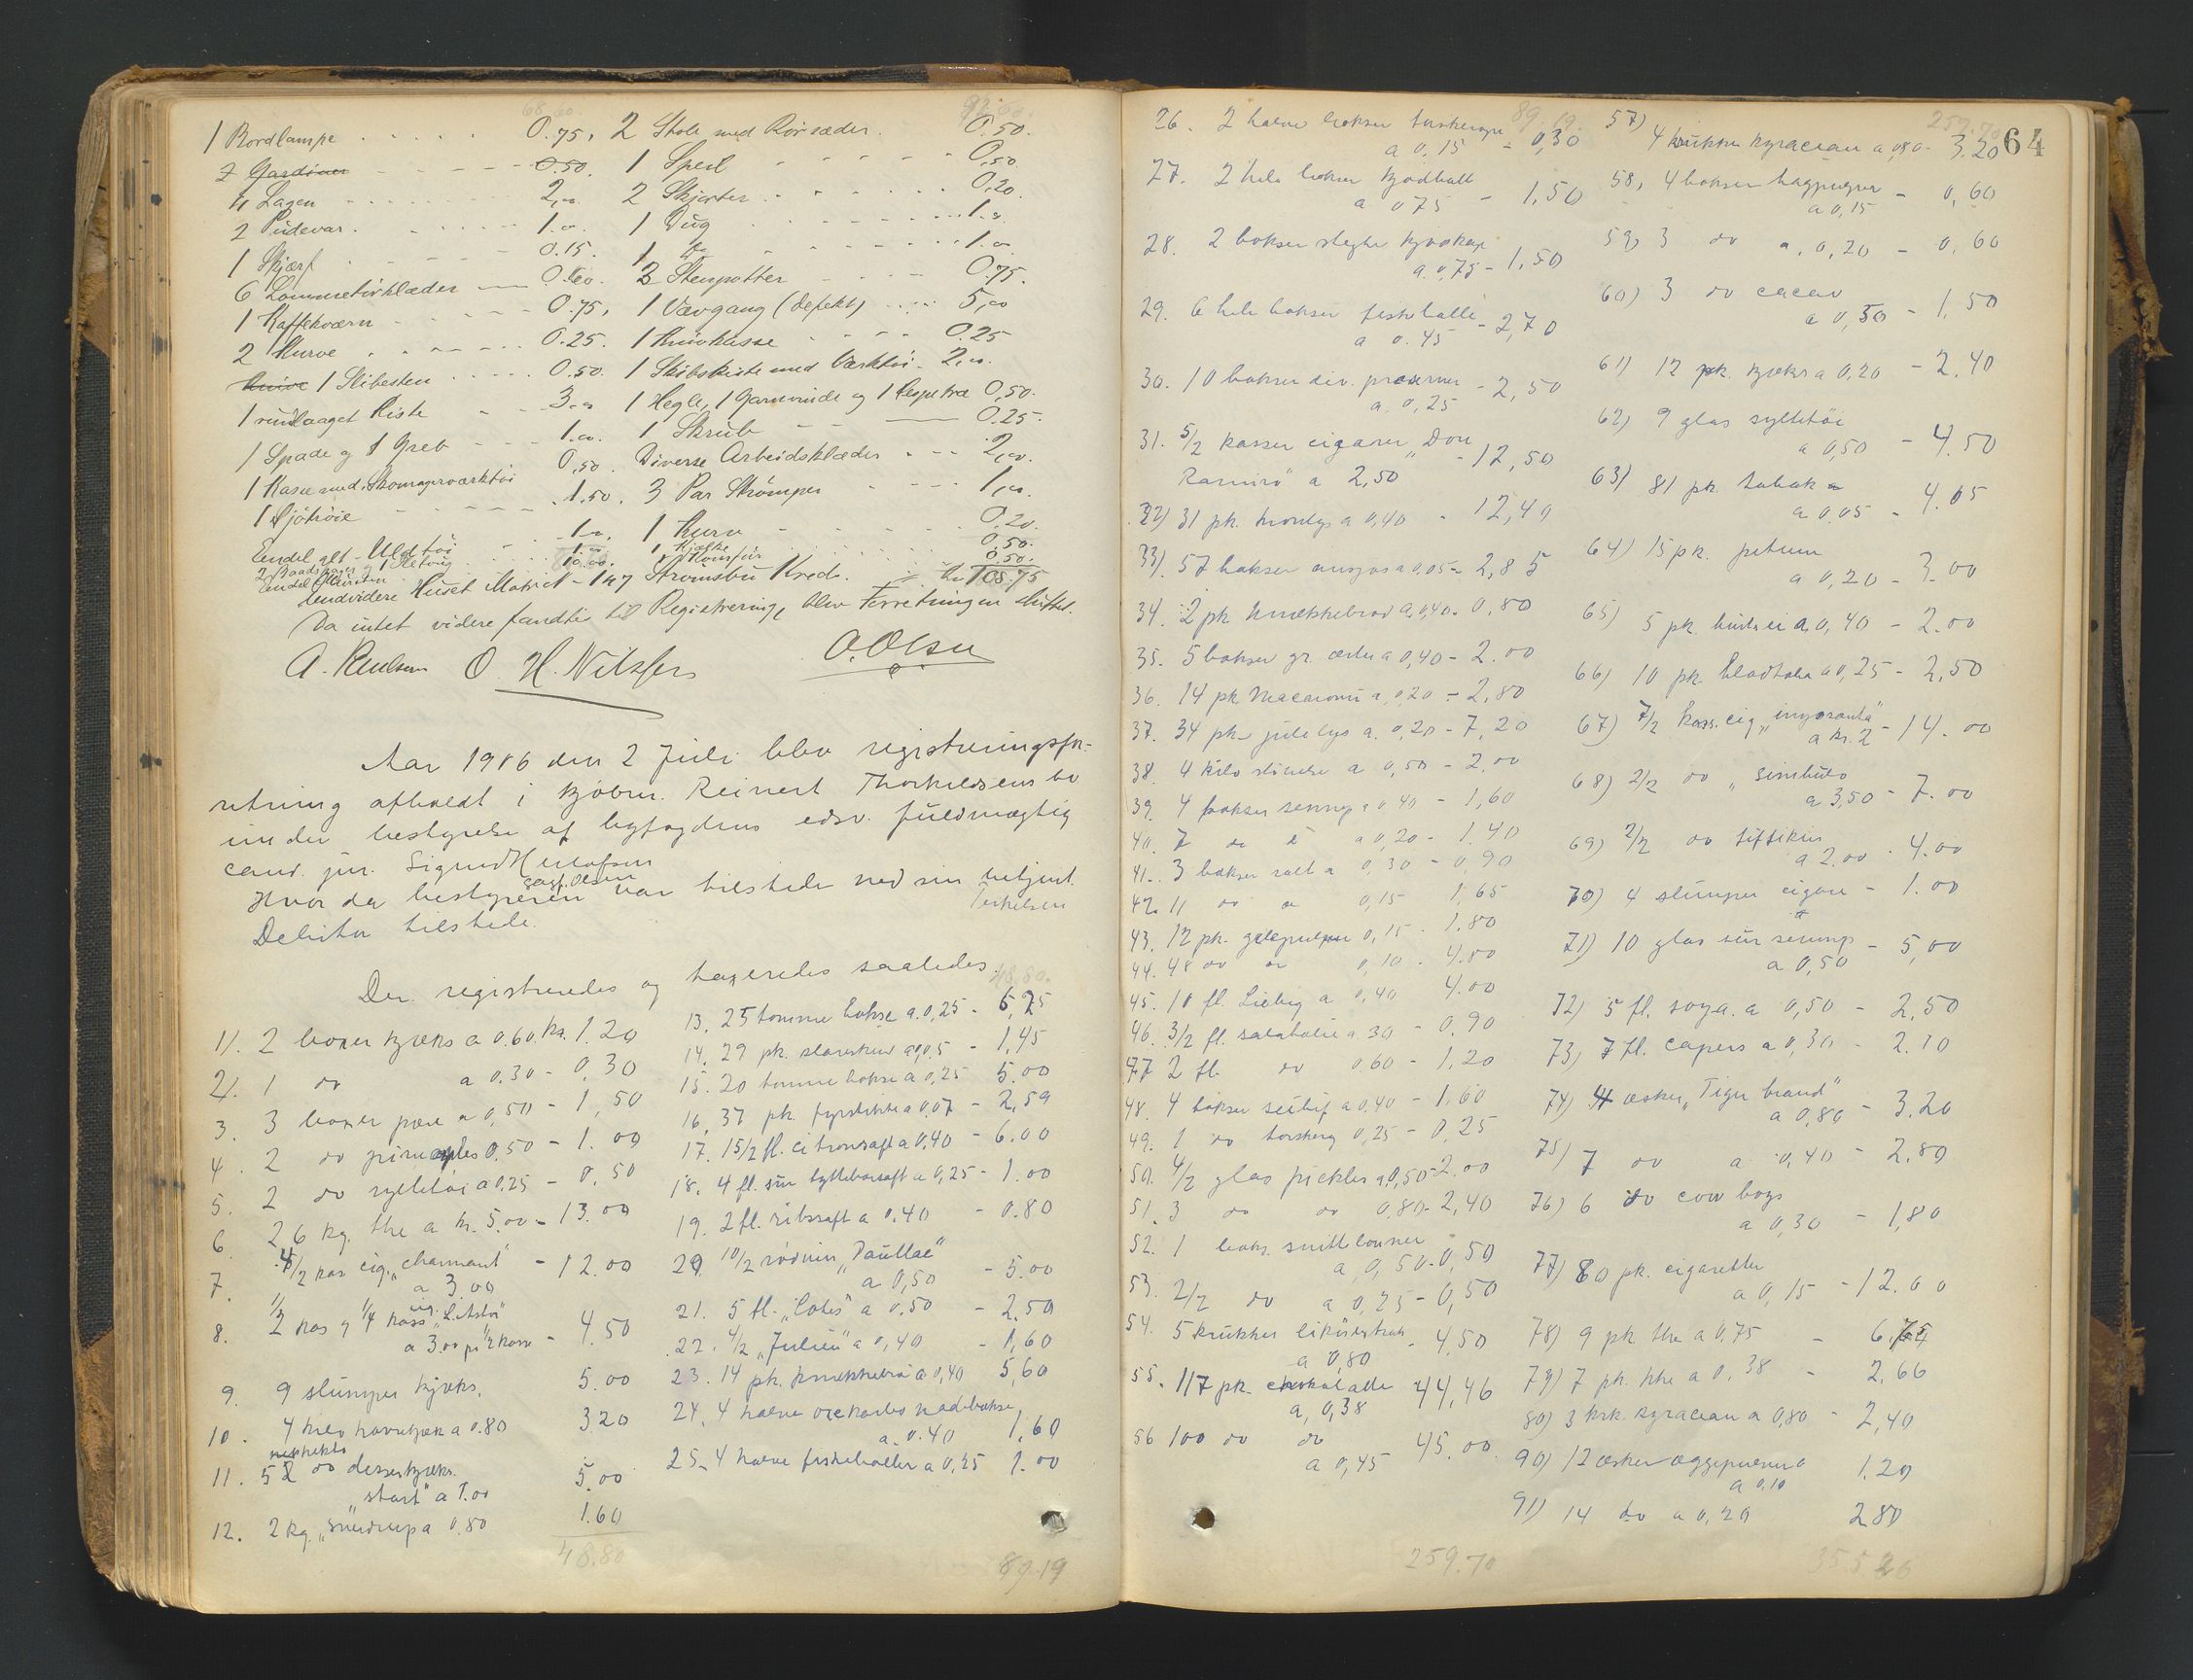 68.60
1 Bordlampe 0.75,
2 Gardiner 0.50.
4 Lagen 2,00
2 Pudevar. 1.00.
1 Skjærf 0.15.
6 Lommetörklæder 0.60.
1 Kaffekværn 0.75,
2 Kurve 0.25.
1 Slibesten 0.50.
1 rundlaaget Kiste 3.00
1 Spade og 1 Greb 1.00.
1 Kasse med Skomagerværktöi 0,50.
1 Sjötröie 1.50.
Endel gl. Uldtöi 1.00.
2 Stole med Rörsæder. 0.50.
1 Speil 0,50.
2 Skjorter 0,20.
1 Dug 1.00
1 do 1.00
3 Stenpotter 0.75.
1 Vævgang (defekt) 5,00
1 Knivkasse 0.25
1 Skibskiste med Værktöi 2,00.
1 Hegle, 1 Garnvinde og 0,50.
1 Skrub 0.25.
Diverse Arbeidsklæder 2,00.
3 Par Strömper 1,00.
1 Kurv 0.20.
1 Kjælke 0,50.
0,50.
Endvidere Huset Matrikl. Strömsbu Kreds. Kr 105.75
Da intet videre fandtes til Registrering, blev Forretningen sluttet.
A. Paulsen O. H. Nilsen O. Olsen
Aar 1906 den 2 Juli blev registreringsfor-
retning afholdt i kjöbm. Reinert Thorkildsens bo
under bestyrelse af byfogdens edsv. fuldmægtig
cand. jur. Sigurd
Hvor da bestyreren var tilstede med sin betjent
Terkelsen
Debitor tilstede.
Der registreredes og taxeredes saaledes.
1). 2 boxer kjæks a 0.60. kr. 1.20
2). 1 do a 0.30 - 0.30
3. 3 boxer pære a 0,50 - 1,50
4. 2 do pineaples 0.50 - 1.00
5. 2 do syltetöi a 0.25 - 0.50
6. 2,6 kg. the a kr. 5.00 - 13.00
7. 4/2 kas cig. "charmant" - 12.00
a 3.00
8. 1/2 kas og 1/4 kass cig.
a 3.00 pr 1/2 kasse - 4.50
9. 9 slumper kjæks. 5.00
10. 4 kilo havrekjæks a 0.80 3.20
11. 5 do dessertkjæks.
"start" a 1.00 5.00
12. 2 kg. "Sverdrup a 0.80 1.60
48.80
48.80.
13. 25 tomme bokse a. 0,25 - 6,25
14. 29 pk. a 0,05 - 1,45
15. 20 tomme bokse a 0,25 5.00
16. 37 pk. fyrstikke a 0.07 - 2,59
17. 15/2 fl. citronsaft a 0,40 - 6.00
18. 4 fl. sur tyttebærsaft a 0,25 - 1.00
19. 2 fl. ribssaft a 0.40 - 0.80
20. 10/2 rödvin "Paullac"
a 0,50 - 5.00
21. 5 fl. "Cotes" a 0.50 - 2,50
22. 4/2 "Julien" a 0,40 - 1,60
23. 14 pk. knækkebrö a 0,40 5,60
24. 4 halve bokse
a. 0.40 1,60
25. 4 halve fiskeboller a 0,25 1.00
89.19
64
89.19.
26. 2 halve bokser
a 0,15 - 0,30
27. 2 hele bokser kjödboll
a 0.75 - 1,50
28. 2 bokser stegte kjödkag
a 0,75 - 1,50
29. 6 hele bokser fiskeballe
a 0.45 - 2,70
30. 10 bokser div. præserver - 2,50
a. 0,25
31. 5/2 kasser cigarer "Don
Ramiro" a 2,50 - 12,50
32) 31 pk. kronlys a 0,40 - 12,40
33). 57 bokser ansjos a 0,05 - 2,85
34. 2 pk. knækkebröd a 0,40. 0.80
35. 5 bokser gr. ærter a 0,40 - 2.00
36. 14 pk. Macaroni a 0,20 - 2,80
37. 34 pk. julelys a. 0,20 - 7,20
38. 4 kilo stivelse a 0,50 - 2.00
39. 4 bokser sennep a 0.40 - 1,60
40. 7 do a 0,20 - 1.40
41. 3 bokser salt a 0,30 - 0,90
42. 11 do a 0,15 1,65
43. 12 pk. gelepulver 0,15 - 1.80
44. 48 do a 0,10 - 4.80
45. 10 fl. Liebig a 0,40 4.00
46. 3/2 fl. salatolie a 30 - 0,90
47. 2 fl. do 0.60 - 1.20
48. 4 bokser a 0,40 - 1,60
49. 1 do torskerog 0,25 - 0,25
50. 4/2 glas pickles a 0,50 - 2.00
51. 3 do do 0,80 - 2,40
52. 1 boks. snittebönner
a 0,50 - 0,50
53. 2/2 do a 0,25 - 0,50
54. 5 krukker
a 0,80 - 4,50
55. 117 pk. chokolade
a, 0,38 44,46
56. 100 do do
a 0,45 45.00
259.70
259.70
57) 4 krukker a 0,80 - 3.20
58, 4 bokser bagpulver
a 0,15 - 0,60
59) 3 do a. 0,20 - 0,60
60) 3 do cacao
a 0,50 - 1,50
61) 12 pk. kjæks a 0,20 - 2.40
62) 9 glas syltetöi
a 0,50 - 4.50
63) 81 pk. tobak
a 0.05 - 4.05
64) 15 pk. petum
a 0,20 - 3.00
65) 5 pk. a 0,40 - 2.00
66) 10 pk. bladtobak a 0,25 - 2,50
67) 7/2 kass. cig.
a kr. 2 - 14.00
68) 2/2 do
a 3,50 - 7.00
69) 2/2 do
a 2.00 - 4.00
70) 4 slumper cigare - 1.00
71) 10 glas sur sennep
a 0,50 - 5,00
72) 5 fl. soya. a 0,50 - 2,50
73) 7 fl. capers a 0,30 - 2.10
74) 4 æsker "Tiger brand"
a 0,80 - 3.20
75) 7 do a 0,40 - 2.80
76) 6 do cow boys
a 0,30 - 1,80
77) 80 pk. cigaretter
a 0,15 - 12.00
78) 9 pk the a 0.75 - 6,75
79) 7 pk. the a 0,38 - 2.66
80) 3 krk. a 0,80 - 2,40
90) 12 æsker æggepulver
a 0,10 1.20
91) 14 do a 0,20 2.80